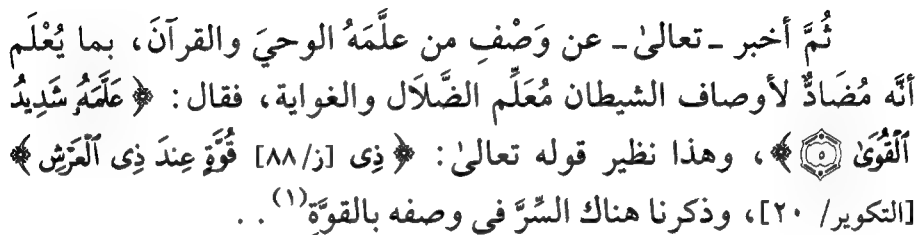 ثُمَّ أخبر ـ تعالىٰ ـ عن وَصْفِ من علَّمَهُ الوحيَ والقرآنَ، بما يُعْلَم
أنَّه مُضَادٌّ لأوصاف الشيطان مُعَلِّم الضَّلَال والغواية، فقال: ﴿عَلَّمَهُۥ شَدِيدُ
ٱلْقُوَىٰ ٥﴾، وهذا نظير قوله تعالىٰ: ﴿ذِى [ز/٨٨] قُوَّةٍ عِندَ ذِى ٱلْعَرْشِ﴾
[التكوير/ ٢٠]، وذكرنا هناك السِّرَّ في وصفه بالقوَّةِ(١) . .